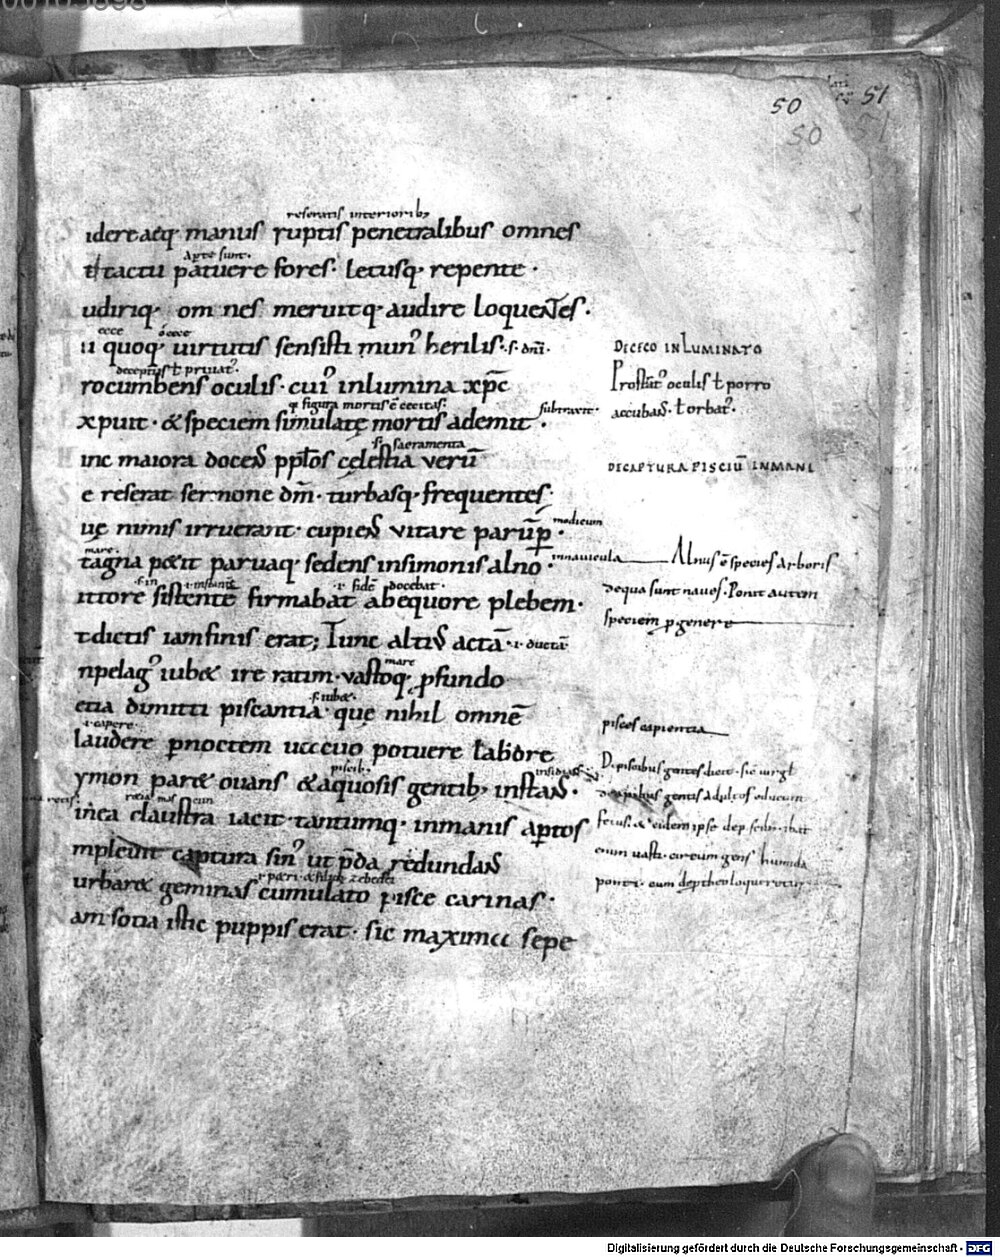 50 51
50 51
reseratis interiorib;
idercaeq· manus ruptis penetralibus omnes
Apte sunt·
tactu patuere fores· letusq· repente·
udiriq· om nes meruitq· audire loquentes·
ecce
ii quoq· uirtutis sensisti mun' herilis· s· dni·
deceptus ł priuat'
rocumbens oculis· cui' inlumina xp̄c
figura mortis ē cecitas·
xpuit· & speciem simulatę mortis ademit· subtraxit·
s· sacramenta
inc maiora docens pp̄los cęlestia verū
e reserat sermone dm̄· turbasq· frequentes·
uę nimis irruerant· cupiens vitare parūp̄· modicum
mare·
tagna p&it paruaq· sedens insimonis alno· innauicula
i· fidē docebat·
ittore sistente firmabat abequore plebem·
t dictis iam finis erat; Tunc altius actā· i· ductā
mare
npelag' iub& ire ratim· vastoq· p̱fundo
s· iub&·
etia dimitti piscantia· que nihil omnē
i· capere·
laudere p̱noctem uacuo potuere labore
piscib; insidias
ymon par& ouans & aquosis gentib; instans·
inca claustra iacit· tantumq· inmanis aptos
mpleuit captura sin' ut p̄da redundans
zebedei
urbar& geminas cumulato pisce carinas·
am socia istic puppis erat· sic maxima sepe
DECECO INLUMINATO
Prostrat' oculis ł porro
accubans· ł orbat'·
DECAPTURA PISCIŪ INMANI
Alnus ē species arboris
dequa sunt naues· Ponit autem
speciem p̱ genere
pisces capientia
Depiscibus gentes dicit· sic uirgł
enim uasti· circum gens humida
ponti· cum
Digitalisierung gefördert durch die Deutsche Forschungsgemeinschaft - DFG